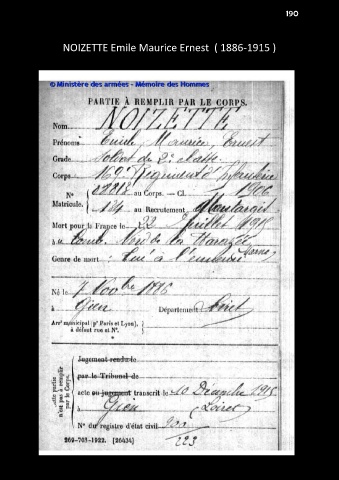 190
NOIZETTE Emile Maurice Ernest ( 1886-1915 )
© Ministère des armées - Mémoire des Hommes
PARTIE À REMPLIR PAR LE CORPS.
Nom NOIZETTE
Prénoms Emile, Maurice, Ernest
Grade Soldat de 2e classe
Corps 169e Régiment d'Infanterie
N° 02212 au Corps. — Cl. 1906
Matricule. 124 au Recrutement Montargis
Mort pour la France le 22 Juillet 1915
à la tombe, Nord de la Harazée Marne
Genre de mort : tué à l'ennemi
Né le 7 Novbre 1886
à Gien Département Loiret
Arrt municipal (pr Paris et Lyon),
à défaut rue et N°.
Cette partie
n'est pas à remplir
par le Corps.
Jugement rendu le
par le Tribunal de
acte ou jugement transcrit le 10 Décembre 1915
à Gien Loiret
N° du registre d'état civil
223
269-703-1922. [26434]